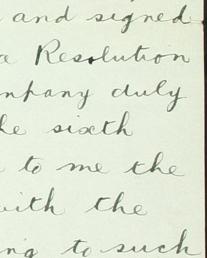 and signed
a Resolution
mpany duly
he sixth
to me the
with the
ng to such